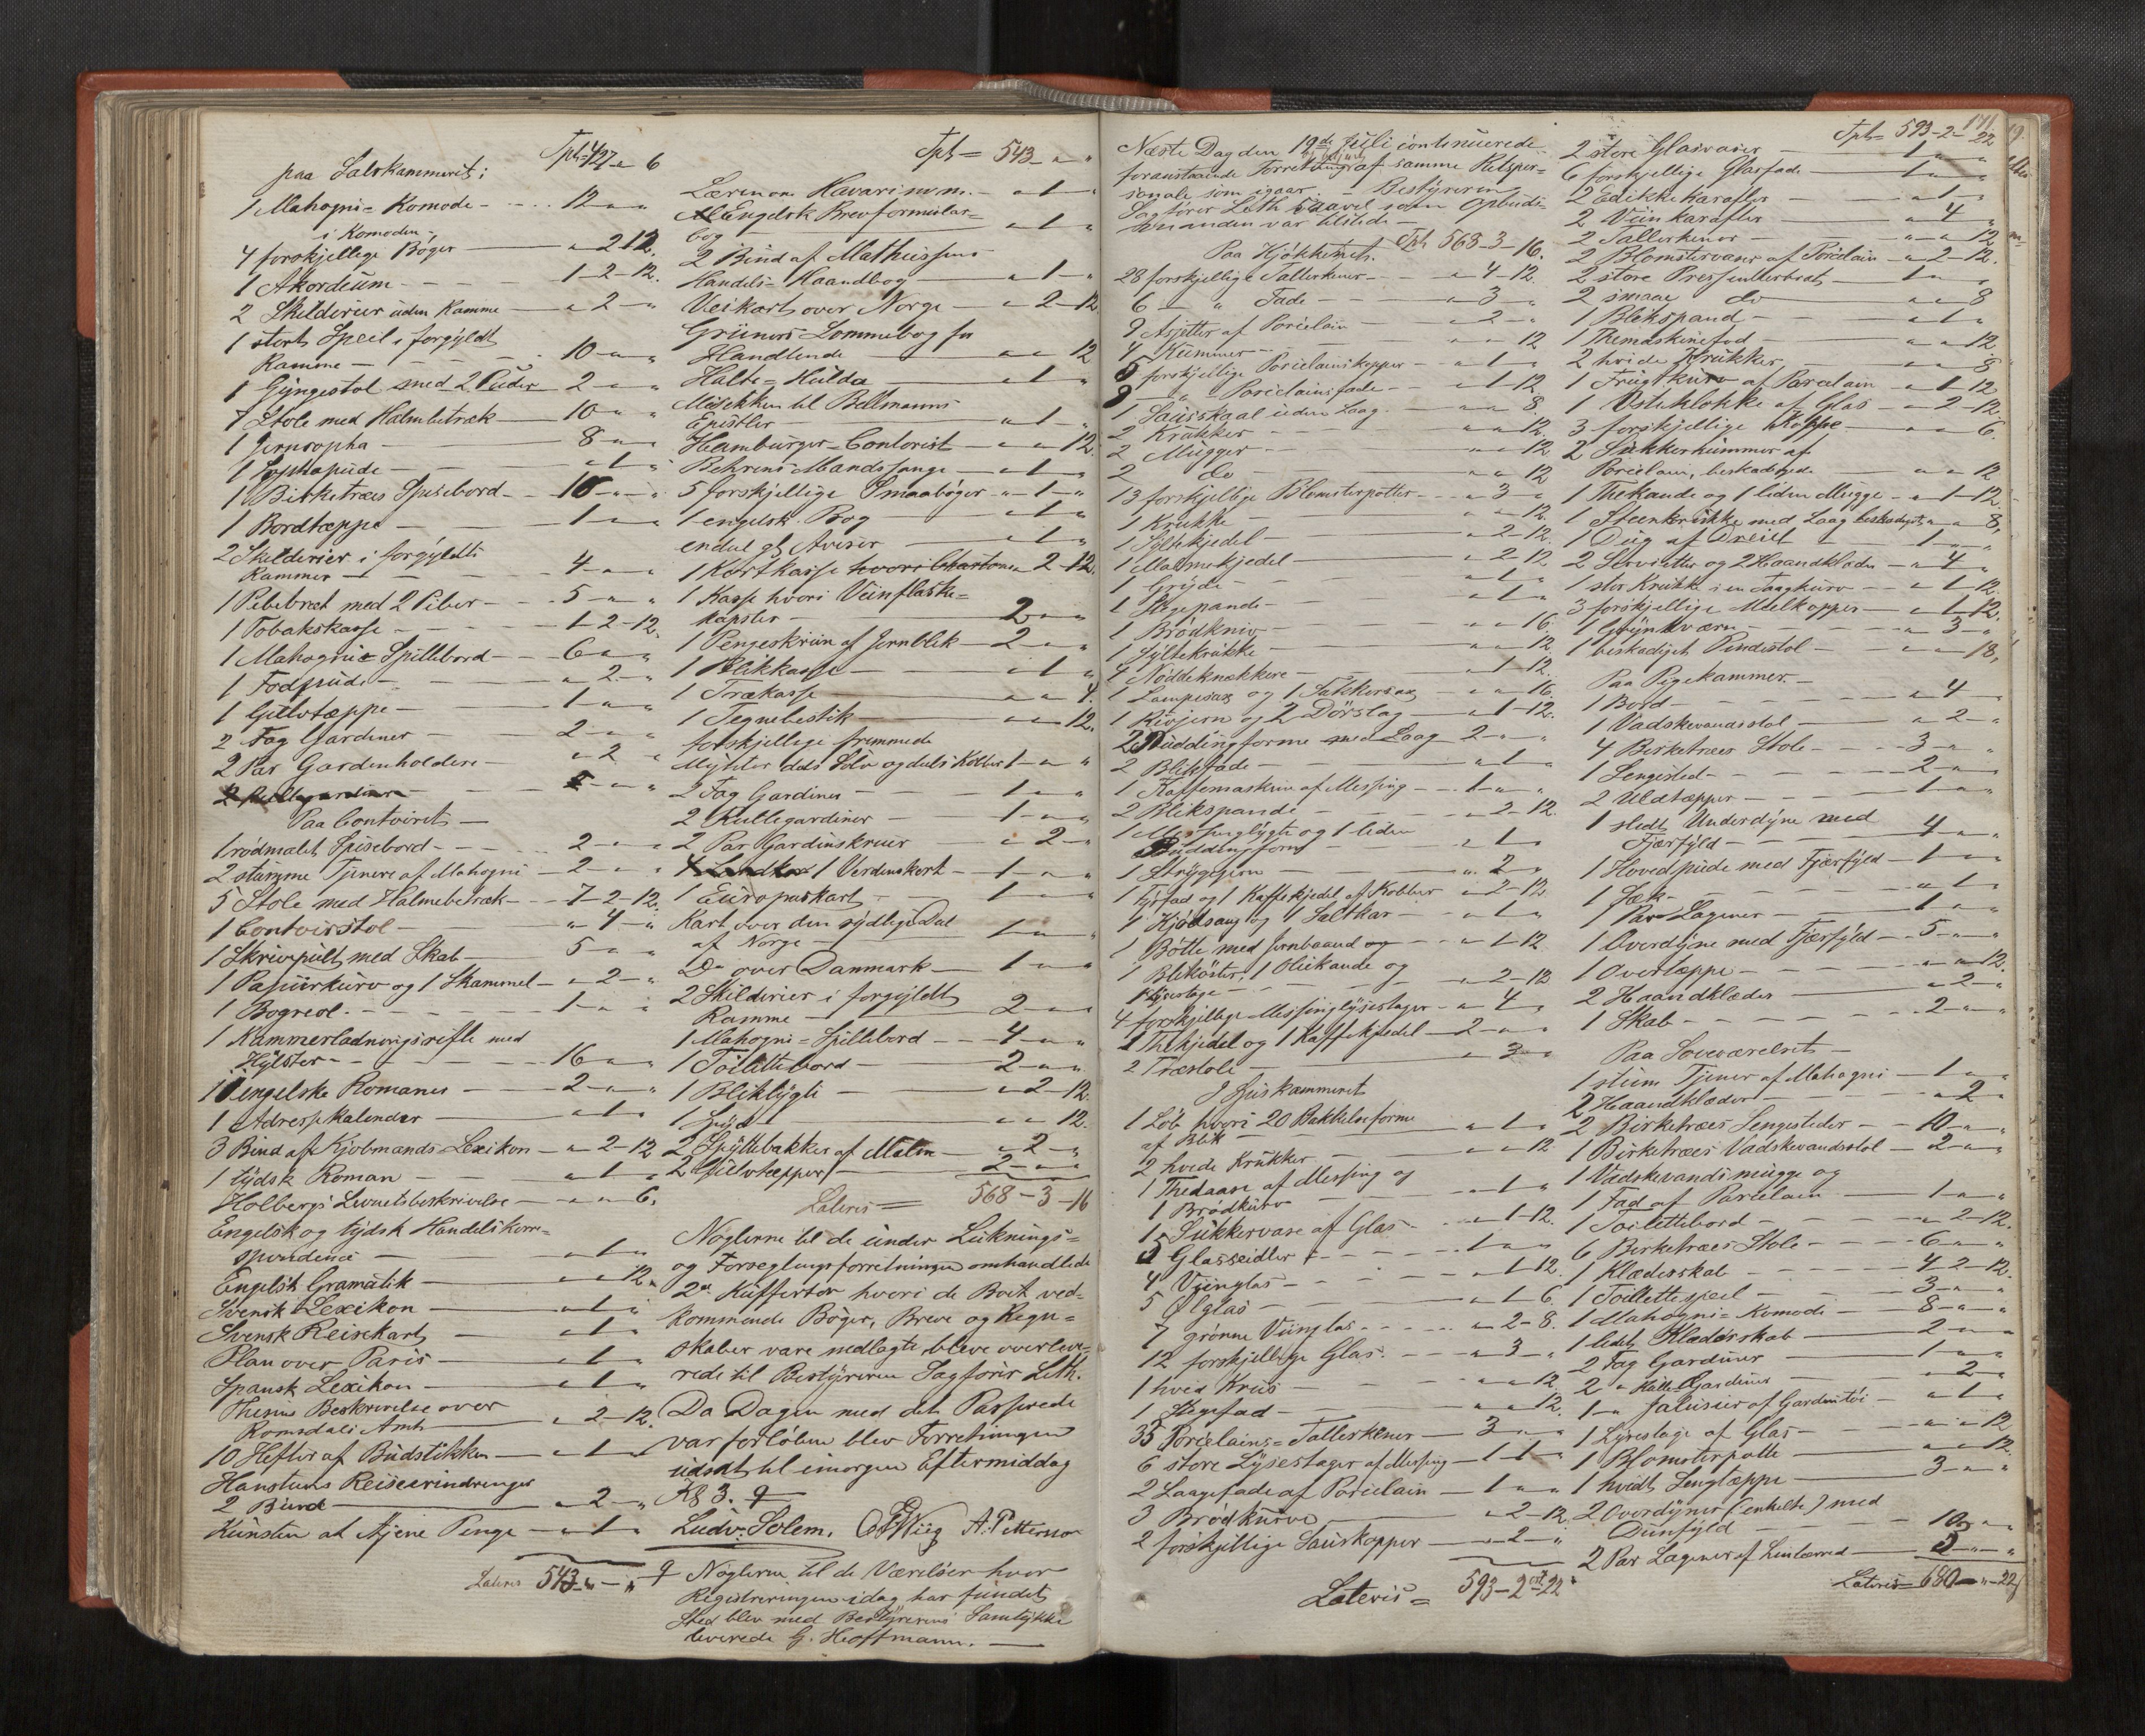 Tph = 427 - " 6
paa Salskammeret:
1 Mahogni = Komode - 12 - " - "
i Komoden:
4 forskjellige Bøger - " 2 - 12.
1 Akordeum - 1 - 2 - 12.
2 Skilderier uden Ramme - " 2 - "
1 stort Speil i forgyldt
Ramme - 10 - " - "
1 Gyngestol med 2 Puder - 2 - " - "
7 Stole med Halmbetræk - 10 - " - "
1 Jernsopha - 8 - " - "
1 Sophapude - " 1 - "
1 Birketræes Spisebord - 10 - " - "
1 Bordtæppe - 1 - " - "
2 Skilderier i forgyldte
Rammer - 4 - " - "
1 Pibebræt med 2 Piber - 5 - " - "
1 Tobakskasse - 1 - 2 - 12.
1 Mahogni = Spillebord - 6 - " - "
1 Fodpude - " 2 - "
1 Gulvtæppe - 1 - " - "
2 Fag Gardiner - 2 - " - "
2 Par Gardinholdere - " 2 - "
2 Rullegardiner
Paa Contoiret -
1 rødmalet Spisebord - 2 - " - "
2 stumme Tjenere af Mahogni - 2 - " - "
5 Stole med Halmbetræk - 7 - 2 - 12.
1 Contoirstol - " 4 - "
1 Skrivepult med Skab - 5 - " - "
1 Papiirkurv og 1 Skammel - " 2 - "
1 Bogreol - 1 - " - "
1 Kammerladningsrifle med
Hylster - 16 - " - "
10 engelske Romaner - 2 - " - "
1 Adressekalender - " 1 - "
3 Bind af Kjøbmands-Lexikon - " 2 - 12
1 tydsk Roman - " 1 - "
Holbergs Levnetsbeskrivelse - " " 6.
Engelsk og tydsk Handelskorre-
spondence - " 1 - "
Engelsk Gramatik - " " 12.
Svensk Lexikon - " 1 - "
Svensk Reisekart - " 1 - "
Plan over Paris - " 1 - "
Spansk Lexikon - " 1 - "
Thesius Beskrivelse over
Romsdals Amt - " 2 - 12.
10 Hefter af Budstikken - " 1 - "
Hanstens Reiseerindringer
2 Bind - " 2 - "
Kunsten at tjene Penge - " 1 - "
Lateris 543 - " - "
Tph = 543 - " "
Læren om Havari m. m. - " 1 - "
Engelsk Brevformular=
bog - " 1 - "
2 Bind af Mathiesens
Handels-Haandbog - " 1 - "
Veikart over Norge - " 2 - 12
Grüners Lommebog for
Handlende - " " 12
Halte = Hulda - " 1 - "
Musikken til Bellmanns
Epistler - " 1 - "
Hamburger-Contorist - " " 12.
Behrens Mandssange - " 1 - "
5 forskjellige Smaabøger - " 1 - "
1 engelsk Bog - " 1 - "
endel gl. Aviser - " 1 - "
1 Kortkasse hvori Charton " 2 - 12.
1 Kasse hvori Viinflaske=
kapsler - 2 - " - "
1 Pengeskriin af Jernblik - 2 - " - "
1 Blikkasse - " 1 - "
1 Trækasse - " " 4.
1 Tegnebestik - " " 12.
forskjellige fremmede
Mynter dels Sølv og dels Kobber 1 - " "
2 Fag Gardiner - 1 - " - "
2 Rullegardiner - 1 - " - "
2 Par Gardinskruer - " 2 - "
1 Verdenskort - 1 - " - "
1 Europaskart - 1 - " - "
Kart over den sydlige Deel
af Norge - 1 - " - "
Do over Danmark - 1 - " - "
2 Skilderier i forgyldt
Ramme - 2 - " - "
1 Mahogni = Spillebord - 4 - " - "
1 Toilettebord - 2 - " - "
1 Bliklygte - " 2 - 12.
1 Spyd - " " 12.
2 Spyttebakker af Malm - " 2 - "
2 Gulvtæpper - 2 - " - "
Lateris = 568 - 3 - 16
Nøglerne til de under Luknings=
og Forseglingsforretningen omhandlede
2de Kufferter hvori de Boet ved-
kommende Bøger, Breve og Regn=
skaber vare nedlagte, bleve overleve-
rede til Bestyreren Sagfører Leth.
Da Dagen med det Passerede
var forløben blev Forretningen
udsat til imorgen Eftermiddag
Kl 3. 9
Ludv: Solem. A. Petterson
9 Nøglerne til de Værelser hvor
Registreringen idag har fundet
Sted blev med Bestyrerens Samtykke
leverede G. Hoffmann. -
Næste Dag den 19de Juli continuerede
foranstaaende Forretning af samme Retsper=
sonale som igaar. - Bestyreren
Sagfører Leth saavel som Opbudi-
denanden var tilstede -
Paa Kjøkkenet. Tph 568 - 3 - 16.
28 forskjellige Tallerkener - " 4 - 12.
6 - " Fade - " 3 - "
9 Asjetter af Porcelain - " 2 - "
4 Kummer - " " 12
8 forskjellige Porcelainskopper - " 1 - "
9 - " Porcelainsfade - " 1 - 12
1 Sausskaal uden Laag - " " 8.
2 Krukker - " " 12.
2 Mugger - " " 12
2 do - " " 12
13 forskjellige Blomsterpotter - " 3 - "
1 Krukke - " " 12.
1 Syltekjedel - " 2 - 12.
1 Malmekjedel - " 2 - 12
1 Gryde - " 1 - "
1 Stegepande - " 1 - "
1 Brødkniv - " " 16.
1 Syltekrukke - " " 12.
4 Nøddeknækkere - " 1 - 12.
1 Lampesax og 1 Sukkersax - " " 16.
1 Rivjern og 2 Dørslag - " 1 - 12.
2 Puddingforme med Laag - 2 - " - "
2 Blikfade - " 1 - "
1 Kaffemaskine af Messing - 1 - " - "
2 Blikspande - " 2 - 12.
1 Messinglygte og 1 liden
Buddingform - " 1 - "
1 Strygejern - " 2 - "
1 Fyrfad og 1 Kaffekjedel af Kobber - " 2 - 12.
1 Kjødsaug og 4 Saltkar - " 1 - "
1 Bøtte med Jernbaand og - " 1 - 12.
1 Blikøster, 1 Oliekande og
1 Lysestage - " 2 - 12
4 forskjellige Messinglysestager - " 4 - "
1 Thekjedel og 1 Kaffekjedel - 2 - " - "
2 Træstole - " 3 - "
I Spiskammeret
1 Løb hvori 20 Bakkelseforme
af Blik - " 1 - "
2 hvide Krukker - " " 12
1 Thedaase af Messing og
1 Brødkurv - " 1 - "
1 Sukkervase af Glas - " 1 - 12.
3 Glasseidler - 1 - " - "
4 Viinglas - " 1 - 12.
5 Ølglas - " 1 - 6.
7 grønne Viinglas - " 2 - 8.
12 forskjellige Glas - " 3 - "
1 hvid Kruus - " " 12
1 Stegefad - " " 12.
35 Porcelains = Tallerkener - 3 - " - "
6 store Lysestager af Messing - 1 - 1 - "
2 Laagefade af Porcelain - 1 - " - "
3 Brødkurve - " 2 - 12
2 forskjellige Sauskopper - " 2 - "
Lateris = 593 - 2 ort 22
171
Tph = 593 - 2 - 22
2 store Glasvaser - 1 - " - "
6 forskjellige Glasfade - 1 - " - "
2 Edikke Karafler - " 1 - "
2 Viin karafler - " 4 - "
2 Tallerkener - " " 12.
2 Blomstervaser af Porcelain - " 2 - 12.
2 store Presenteerbræt - 1 - " - "
2 smaae do - " " 8
1 Blikspand - " 1 - "
1 Themaskinefod - " " 12
2 hvide Krukker - " " 8
1 Frugtkurv af Porcelain - " 1 - 12
1 Osteklokke af Glas - " 2 - 12.
3 forskjellige Koppe - " " 6.
2 Sukkerkummer af
Porcelain, beskadigede - " " 12
1 Thekande og 1 liden Mugge - " 1 - 12.
1 Steenkrukke med Laag beskadiget " " 8.
1 Dug af Dreiel - 1 - " - "
2 Servietter og 2 Haandklæder - " 4 - "
1 stor Krukke i en Taagkurv - " 1 - 12.
3 forskjellige Melkopper - " 1 - 12.
1 Grynkværn - " 3 - "
1 beskadiget Pindestol - " " 18.
Paa Pigekammer. -
1 Bord - " 4 - "
1 Vadskevandsstol - " 2 - "
4 Birketræes Stole - 3 - " - "
1 Sengested - 2 - " - "
2 Uldtæpper - 1 - " - "
1 slidt Underdyne med
Fjærfyld - 4 - " - "
1 Hovedpude med Fjærfyld - 1 - " - "
1 Sæk - " 1 - "
1 Par Lagener - 1 - " - "
1 Overdyne med Fjærfyld - 5 - " - "
1 Overtæppe - " " 12.
2 Haandklæder - " 2 - "
1 Skab - 2 - " - "
Paa Soveværelset -
1 stum Tjener af Mahogni - 1 - " - "
2 Haandklæder - " 2 - "
2 Birketræes Sengesteder - 10 - " - "
1 Birketræes Vadskevandsstol - 2 - " - "
1 Vadskevandsmugge og
1 Fad af Porcelain - 1 - " - "
1 Toilettebord - " 2 - 12.
6 Birketræes Stole - 6 - " - "
1 Klædesskab - 4 - 2 - 12.
1 Toilettespeil - 3 - " - "
1 Mahogni = Komode - 8 - " - "
1 lidet Klædesskab - 2 - " - "
2 Fag Gardiner - 1 - " - "
2 " Rulle Gardiner - " 2 - "
1 " Jalusier af Gardintøi - " 1 - "
1 Lysestage af Glas - " " 12
1 Blomsterpotte - " " 12.
1 hvidt Sengtæppe - 3 - " - "
2 Overdyner (enkelte) med
Dunfyld - 10 - " - "
2 Par Lagener af Linlærred - 3 - " - "
Lateris = 680 - " - 22